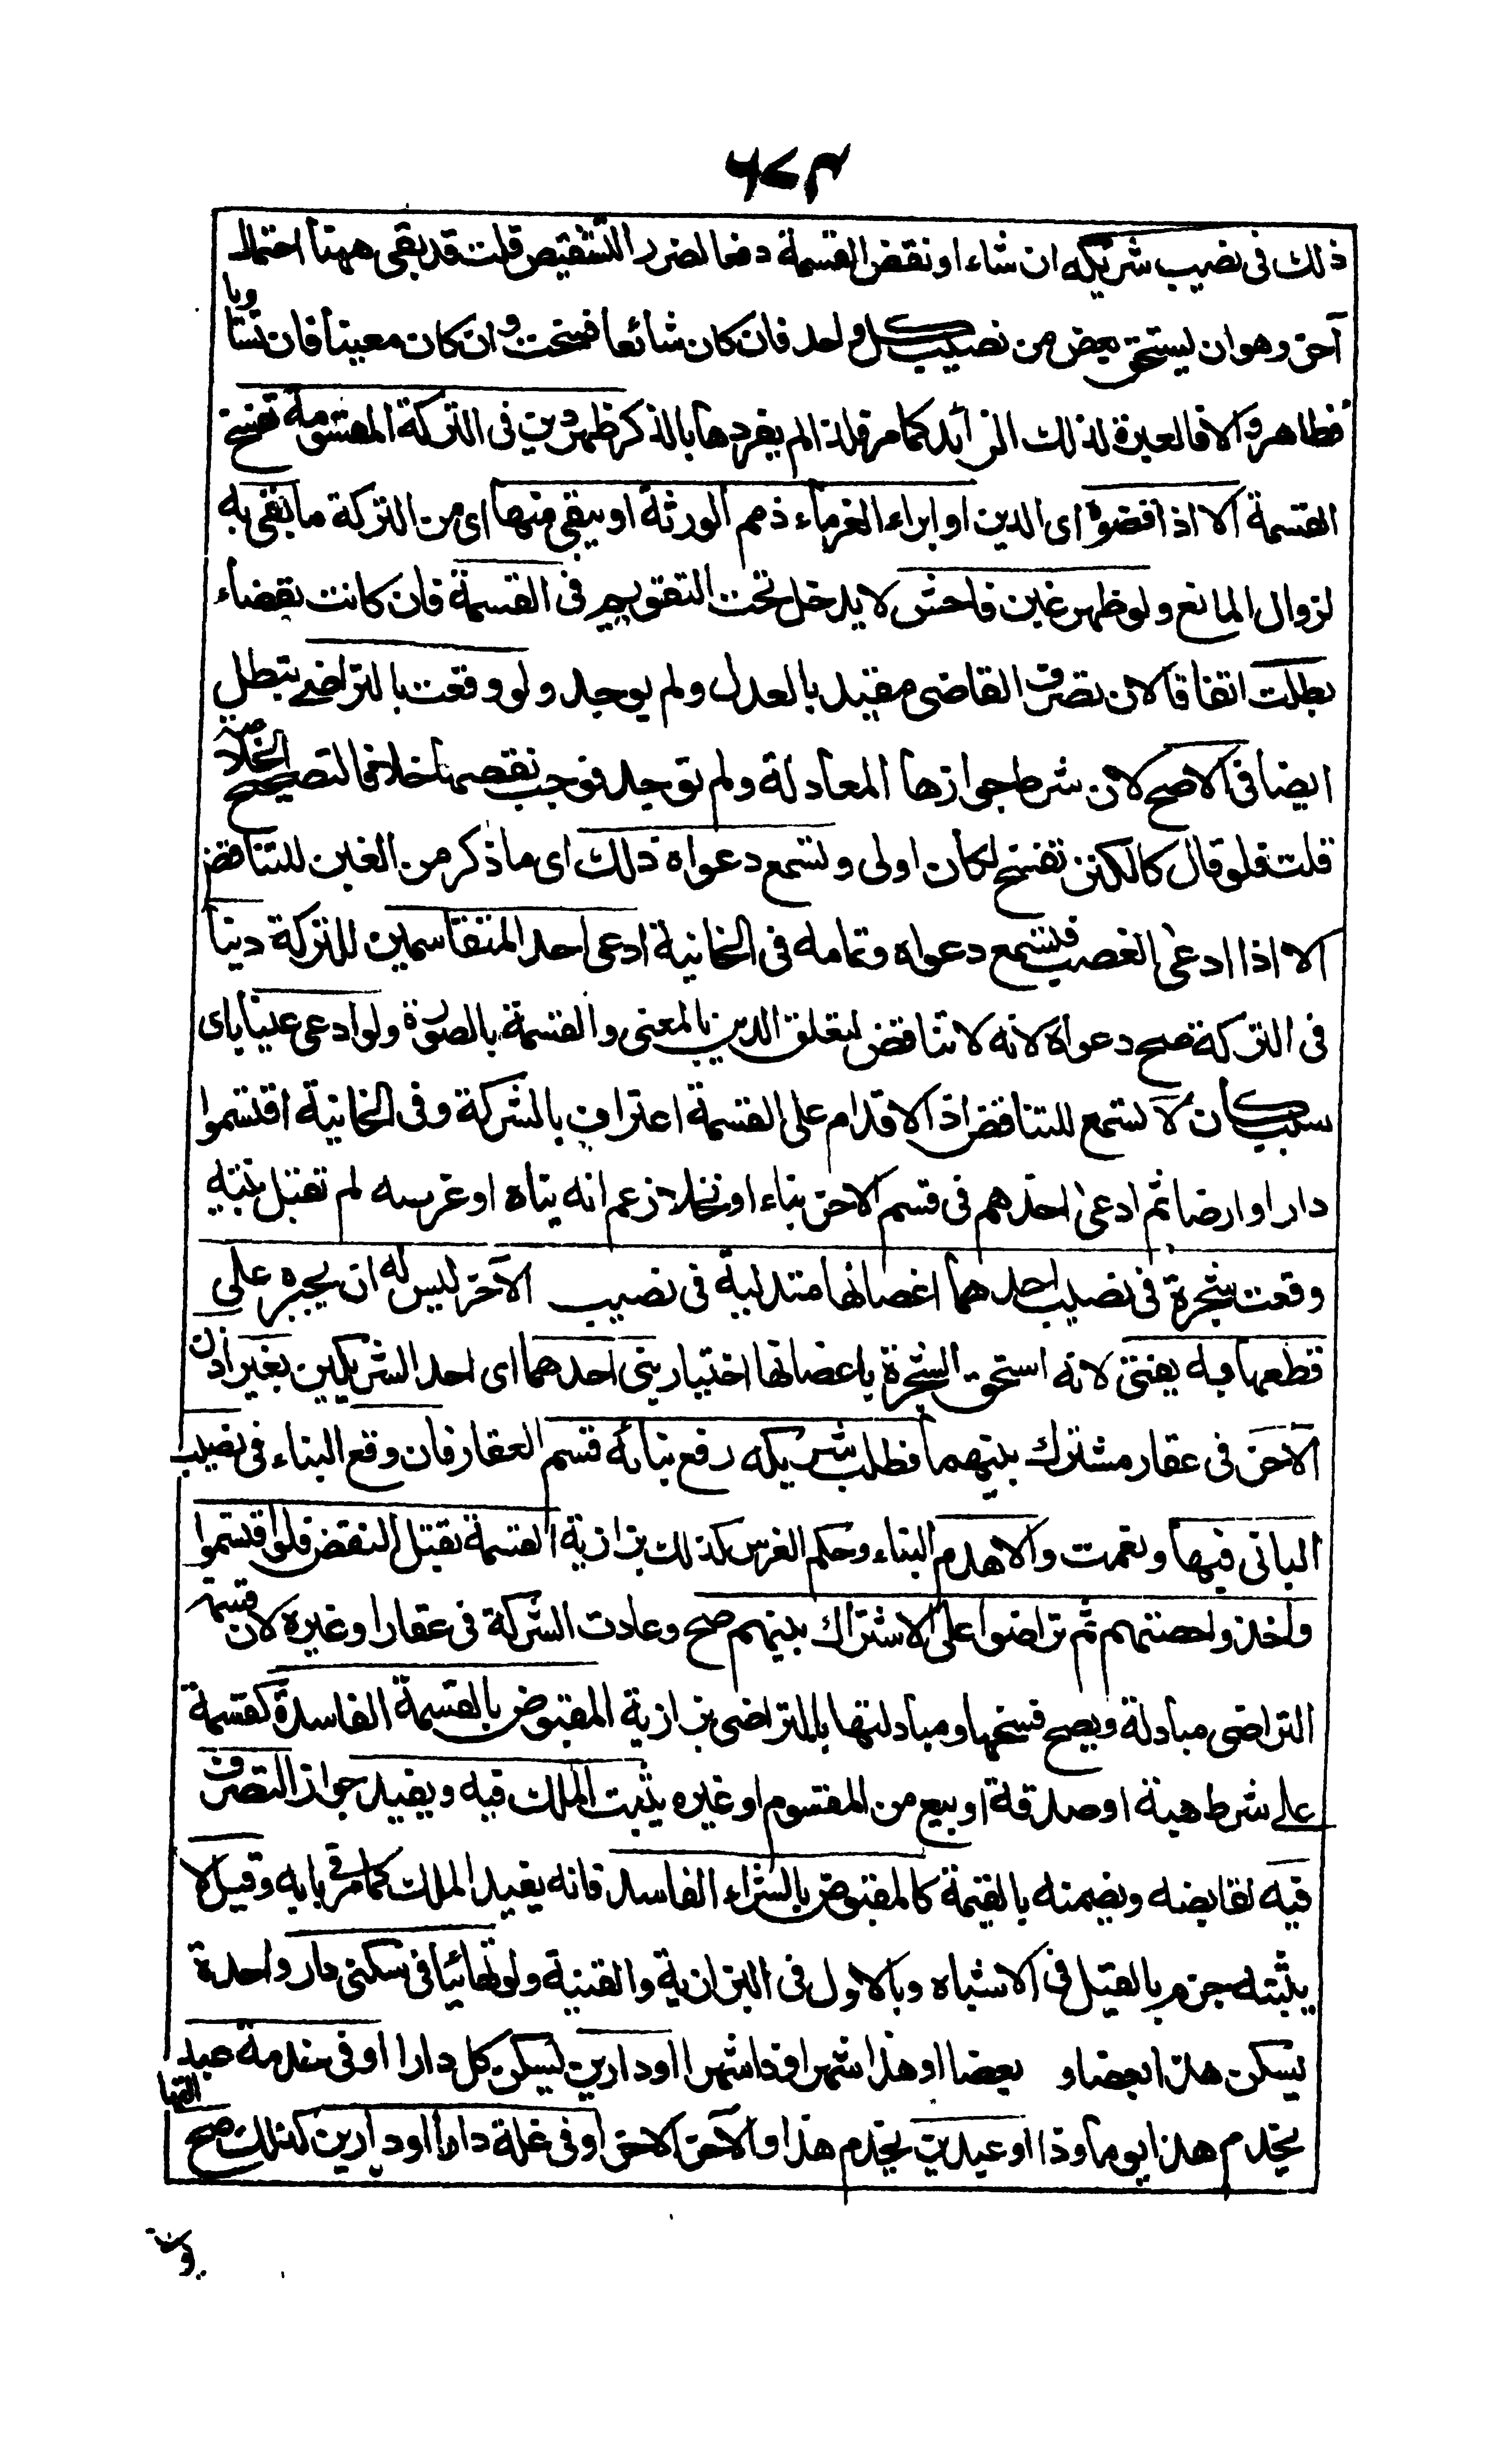 ٦٧٣
ذلك فى نصيب شريكه ان شاء او نقض القسمة دفعا لضرر التشقيص قلت قد بقى ههنا احتمال
آخر وهو ان يستحق بعض من نصيب كل واحد فان كان شائعا فسخت و ان كان معينا فان تساويا
فظاهر و الا فالعبرة لذلك الزائد كما مر فلذا لم يفردها بالذكر ظهر دين فى التركة المقسومة تفسخ
القسمة الا اذا قضوه اى الدين او ابراء الغرماء ذمم الورثة او يبقى منها اى من التركة ما بقى به
لزوال المانع ولو ظهر غبن فاحش لا يدخل تحت التقويم فى القسمة فان كانت بقضاء
بطلت اتفاقا لان تصرف القاضى مقيد بالعدل ولم يوجد ولو وقعت بالتراضى تبطل
ايضا فى الاصح لان شرط جوازها المعادلة ولم توجد فوجب نقضها خلافا لتصحيح الخلاصة
قلت فلو قال كالكنز تفسخ لكان اولى وتسمع دعواه ذلك اى ما ذكر من الغبن للتناقض
الا اذا ادعى الغصب فتسمع دعواه وتمامه فى الخانية ادعى احد المتقاسمين للتركة دينا
فى التركة صح دعواه لانه لا تناقض لتعلق الدين بالمعنى والقسمة بالصورة ولو ادعى عينا باى
سبب كان لا تسمع للتناقض اذ الاقدام على القسمة اعتراف بالشركة وفى الخانية اقتسموا
دارا او ارضا ثم ادعى احدهم فى قسم الآخر بناء او نخلا زعم انه بناه او غرسه لم تقبل بينته
وقعت شجرة فى نصيب احدهما اغصانها متدلية فى نصيب الآخر ليس له ان يجبره على
قطعها وبه يفتى لانه استحق الشجرة باغصانها اختيار بنى احدهما اى احد الشريكين بغير اذن
الآخر فى عقار مشترك بينهما فطلب شريكه رفع بنائه قسم العقار فان وقع البناء فى نصيب
البانى فبها ونعمت والا هدم البناء وحكم الغرس كذلك بزازية القسمة تقبل النقض فلو اقتسموا
واخذوا حصتهم ثم تراضوا على الاشتراك بينهم صح وعادت الشركة فى عقار او غيره لان قسمة
التراضى مبادلة ويصح فسخها ومبادلتها بالتراضى بزازية المقبوض بالقسمة الفاسدة كقسمة
على شرط هبة او صدقة او بيع من المقسوم او غيره يثبت الملك فيه ويفيد جواز التصرف
فيه لقابضه ويضمنه بالقيمة كالمقبوض بالشراء الفاسد فانه يفيد الملك كما مر فى بابه وقيل لا
يثبته جزم بالقيل فى الاشباه وبالاول فى البزازية والقنية ولو تهائيا فى سكنى دار واحدة
يسكن هذا بعضا و بعضا او هذا شهرا وذا شهرا او دارين يسكن كل دارا او فى خدمة عبد
يخدم هذا يوما وذا او عبدين يخدم هذا والآخر الآخر او فى غلة دار او دارين كذلك صح التهائ